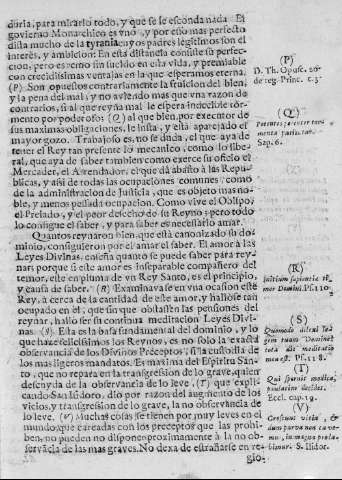 duria, para mirarlo todo, y que se le esconda nada. El
govierno Monarchico es vno, y por esso mas perfecto
dista mucho de la tyrania, en yos padres legitimos son el
interès, y ambicion: En esta distancia consiste su perfec-
cion, pero es reyno sin sucesso en esta vida, y premiable
con crecidissimas ventajas en la que esperamos eterna.
(P) Son opuestos contrariamente la fruicion del bien,
y la pena del mal, y no aviendo mas que vna razon de
contrarios, si al que reyna mal le espera indecible tor-
mento por poderoso (Q) al que bien, por executor de
sus maximas obligaciones, le insta, y està aparejado el
mayor gozo. Trabajoso es, no se duda, el que aya de
tener el Rey tan presente lo mecanico, como lo libe-
ral, que aya de saber tambien como exerce su oficio el
Mercader, el Arrendador, el que dà abasto à las Repu-
blicas, y assi de todas las ocupaciones comunes, como
de la administracion de Justicia, que es objeto mas no-
ble, y menos pensada ocupacion. Como vive el Obispo,
el Prelado, y el peor desecho de su Reyno; pero todo
lo consigue el saber, y para saber es necessario amar.
Quantos reynaron bien, que està canonizado su do-
minio, consiguieron por el amar el saber. El amor à las
Leyes Divinas, enseña quanto se puede saber para rey-
nar; porque si este amor es inseparable compañero del
temor, este en pluma de vn Rey Santo, es el principio,
y causa de saber. (R) Examinavase en vna ocasion este
Rey, à cerca de la cantidad de este amor, y hallòse tan
ocupado en èl, que sin que obstassen las pensiones del
reynar, hallò ser su continua meditacion Leyes Divi-
nas. (S) Ella es la basa fundamental del dominio, y lo
que haze felicissimos los Reynos, es no solo la exacta
observancia de los Divinos Preceptos, si la custodia de
los mas ligeros mandatos. Es maxima del Espiritu San-
to, que no repara en la transgression de lo grave, quien
descuyda de la observancia de lo leve, (T) que expli-
cando San Isidoro, dio por razon del augmento de los
vicios, y transgression de lo grave, la no observancia de
lo leve. (V) Muchas cosas se tienen por muy leves en el
mundo, que careadas con los preceptos que las prohi-
ben, no pueden no disponer proximamente à la no ob-
servãcia de las mas graves. No dexa de estrañarse en re-
gio-
(P)
D. Th. Opusc. 20
de reg. Princ. c. 3.
(Q)
Potentes potenter tor-
menta patientur.
Sap. 6.
(R)
Initium sapientiæ ti-
mor Domini. Ps. 110.
(S)
Quomodo dilexi le-
gem tuam Domine?
tota die meditatio
mea est. Ps. 118.
(T)
Qui spernit modica,
paulatim decidet.
Eccl. cap. 19.
(V)
Crescunt vitia, &
dum parva non cave-
mus, in magna prola-
bimur. S. Isidor.